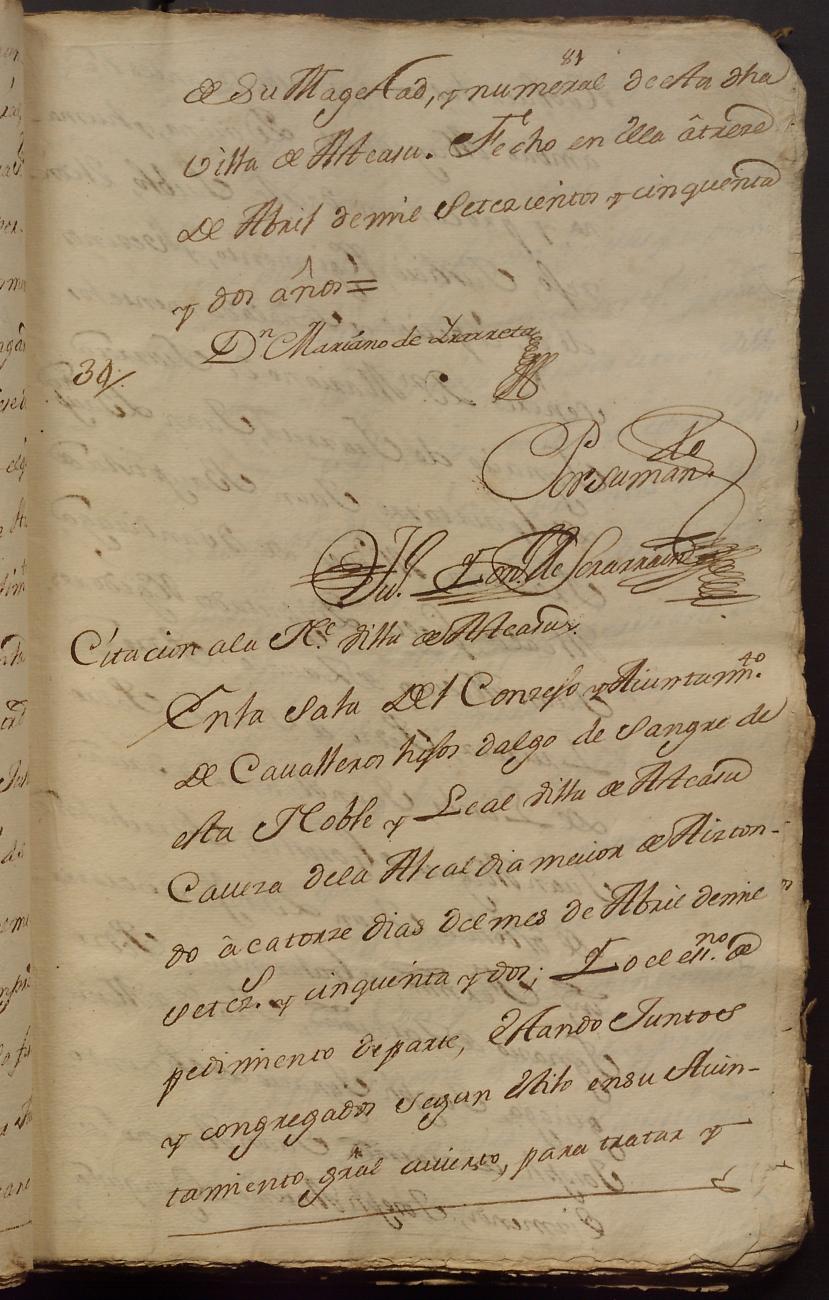 81
de Su Magestad, y numeral de esta dha
Villa de Atasu. Fecho en ella â treze
De Abril de mil Setezientos y cinquenta
y dos años=
Dn Mariano de Ysarreta
39/
Por su mando
Citacion a la Ne. Villa de Atasu.
En la Sala Del Conzejo y Aiuntamto.
De Cavalleros hijos dalgo de Sangre de
esta Noble y Leal Villa de Atasu
Caveza de la Alcaldia maior de Aizcon-
do â catorze dias del mes de Abril de mil
Setezs. y cinquenta y dos; Yo el essno. de
pedimiento de parte, Estando Juntos
y congregados Segun Estilo en su Aiun-
tamiento gral avierto, para tratar y